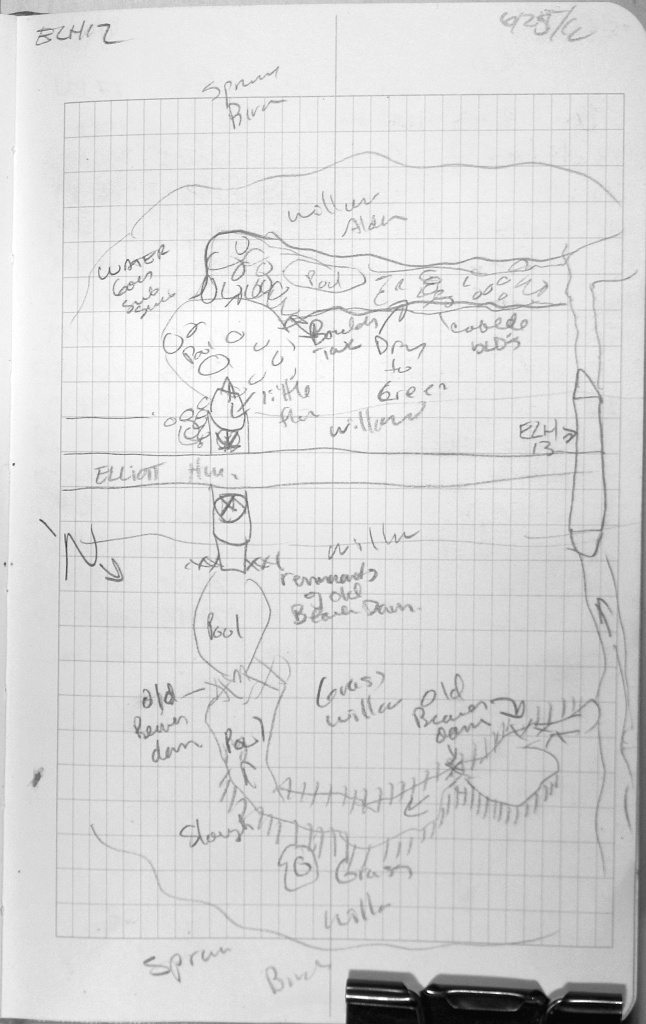 ELH12
Spruce
Birch
Willow
Alder
WATER
Goes
Sub
Pool
Boulder
Cobble
Dry
to
Green
Pool
little
Willow
ELH
13
ELLIOTT Hwy.
N
Willow
remnants
of old
Beaver Dam
Pool
Grass
Willow
old
Beaver
dam
Old
Beaver
dam
Pool
Slough
G
Grass
Willow
Spruce
Birch